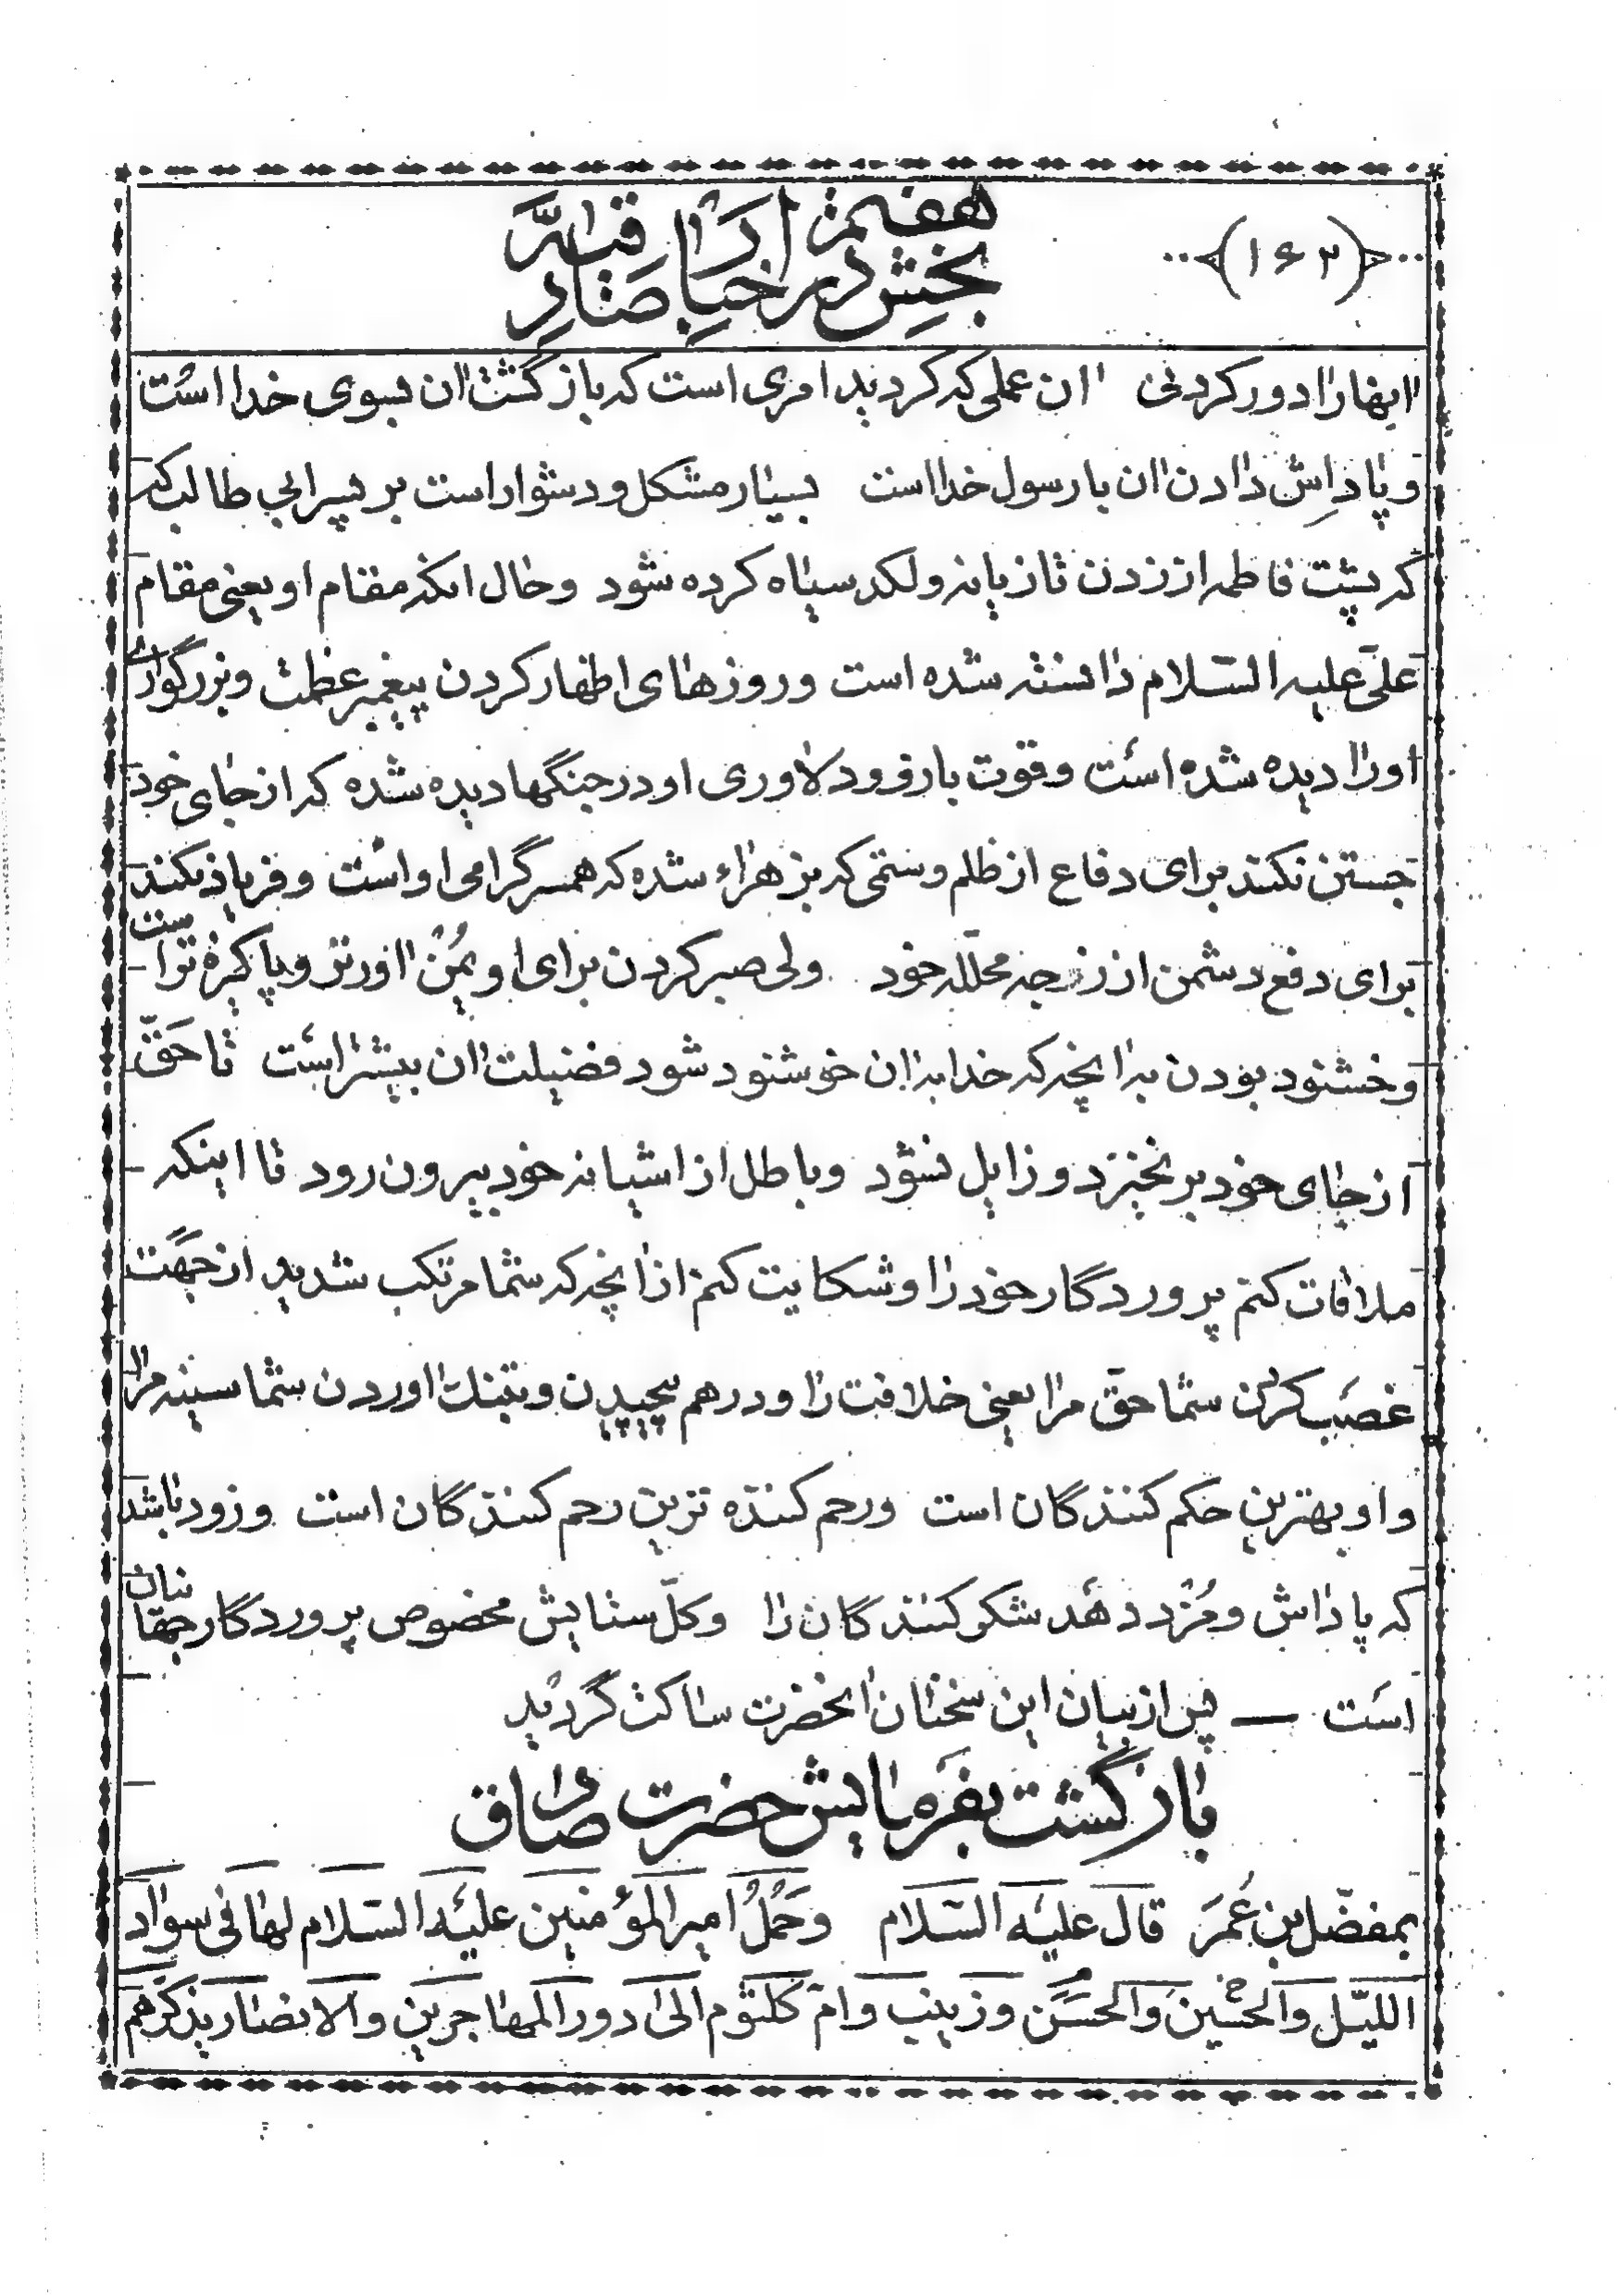 (۱۶۲)
بخش هفتم در اخبار صادقیه
اینها را دور کردنی ان عملی که کردید امری است که بازگشت ان بسوی خدا است
و پاداش دادن ان با رسول خدا است بسیار مشکل و دشوار است بر پسر ابی طالب که
که پشت فاطمه از زدن تازیانه و لکد سیاه کرده شود و حال انکه مقام او یعنی مقام
علی علیه السلام دانسته شده است و روزهای اظهار کردن پیغمبر عظمت و بزرگواری
او را دیده شده است و قوت بازو و دلاوری او در جنگها دیده شده که از جای خود
جستن نکند برای دفاع از ظلم و ستمی که بزهراء شده که همسر گرامی او است و فریاد نکند
برای دفع دشمن از زوجه محلّله خود ولی صبر کردن برای او یُمن اورتر و پاکیزه تر است
و خشنود بودن به انچه که خدا بدان خوشنود شود فضیلت ان بیشتر است تا حَقّ
از جای خود بر نخیزد و زایل نشود و باطل از اشیانه خود بیرون رود تا اینکه -
ملاقات کنم پروردگار خود را و شکایت کنم از انچه که شما مرتکب شدید از جهت
غصب کردن شما حق مرا یعنی خلافت را و در هم پیچیدن و بتنك اوردن شما سینه مرا
و او بهترین حکم کنندگان است و رحم کننده ترین رحم کنندگان است و زود باشد
که پاداش و مُزد دهد شکر کنندگان را و کلّ ستایش مخصوص پروردگار جهانیان
است — پس از بیان این سخنان انحضرت ساکت گردید
بازگشت بفرمایش حضرت صادق
بمفضّل بن عُمَر قال علیه السّلام وحَمْلُ امیر المؤمنین علیه السّلام لها فی سواد
اللیّل والحسین والحسن وزینب وامّ کلثوم الی دور المهاجرین والانصار یذکرهم